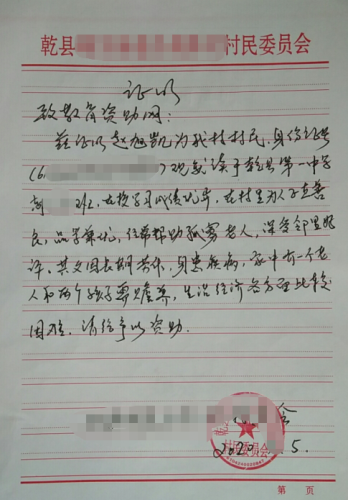 乾县 村民委员会
证明
致教育资助网:
兹证明赵旭凯为我村村民,身份证号
(6 )现就读于乾县第一中学
高 班,在校学习成绩优异,在村里为人正直善
良,品学兼优,经常帮助孤寡老人,深受邻里好
评。其父因长期劳作,身患疾病,家中有一个老
人和两个孩子要赡养,生活经济各方面比较
困难。请给予以资助。
会
村民委员会
2020 . 5.
第 页